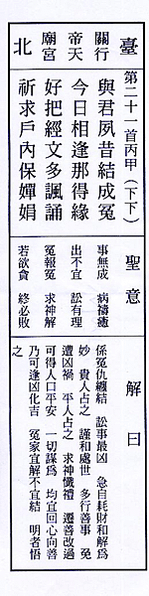 臺北
關帝廟
行天宮
第二十一首丙甲(下下)
與君夙昔結成冤
今日相逢那得緣
好把經文多諷誦
祈求戶內保嬋娟
聖意
事無成 病禱癒
出不宜 訟有理
冤報冤 求神解
若欲貪 終必敗
解曰
係冤仇纏結 訟事最凶 急自耗財和解為
妙 貴人占之 謹和處世 多行善事 免
遭凶禍 平人占之 求神懺禮 遷善改過
可得人口平安 一切謀為 均宜回心向善
乃可逢凶化吉 冤家宜解不宜結 明者悟
之